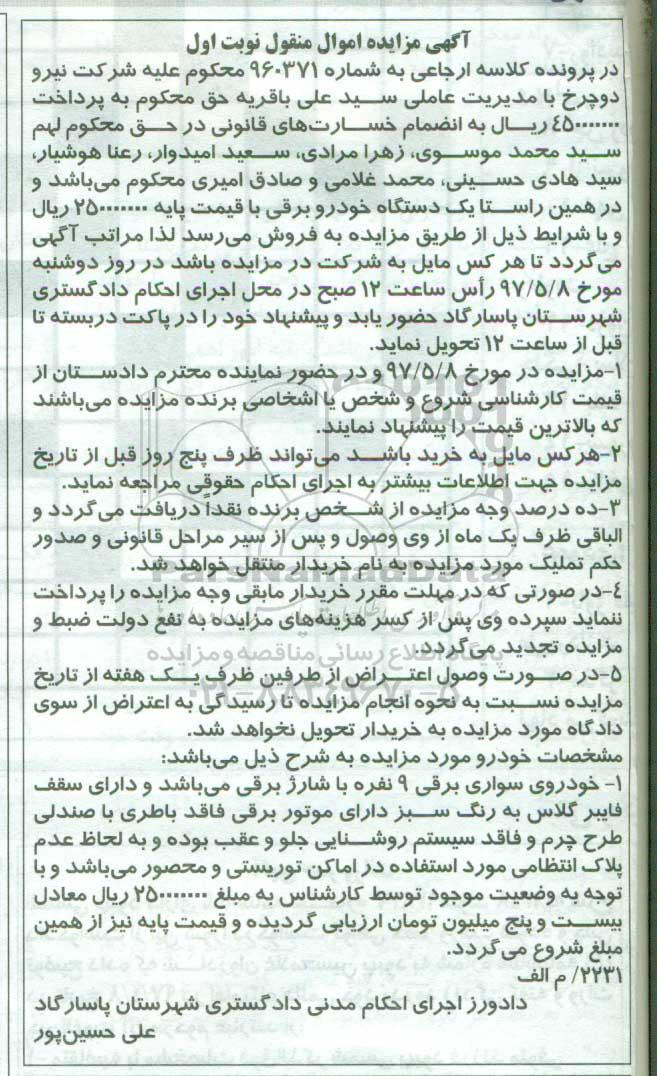 آگهی مزایده اموال منقول نوبت اول
در پرونده کلاسه ارجاعی به شماره ۹۶۰۳۷۱ محکوم علیه شرکت نیرو
دوچرخ با مدیریت عاملی سید علی باقریه حق محکوم به پرداخت
۴۵۰۰۰۰۰۰۰ ریال به انضمام خسارت‌های قانونی در حق محکوم لهم
سید محمد موسوی، زهرا مرادی، سعید امیدوار، رعنا هوشیار،
سید هادی حسینی، محمد غلامی و صادق امیری محکوم می‌باشد و
در همین راستا یک دستگاه خودرو برقی با قیمت پایه ۲۵۰۰۰۰۰۰۰ ریال
و با شرایط ذیل از طریق مزایده به فروش می‌رسد لذا مراتب آگهی
می‌گردد تا هر کس مایل به شرکت در مزایده باشد در روز دوشنبه
مورخ ۹۷/۵/۸ رأس ساعت ۱۲ صبح در محل اجرای احکام دادگستری
شهرستان پاسارگاد حضور یابد و پیشنهاد خود را در پاکت دربسته تا
قبل از ساعت ۱۲ تحویل نماید.
۱-مزایده در مورخ ۹۷/۵/۸ و در حضور نماینده محترم دادستان از
قیمت کارشناسی شروع و شخص یا اشخاصی برنده مزایده می‌باشند
که بالاترین قیمت را پیشنهاد نمایند.
۲-هرکس مایل به خرید باشد می‌تواند ظرف پنج روز قبل از تاریخ
مزایده جهت اطلاعات بیشتر به اجرای احکام حقوقی مراجعه نماید.
۳-ده درصد وجه مزایده از شخص برنده نقداً دریافت می‌گردد و
الباقی ظرف یک ماه از وی وصول و پس از سیر مراحل قانونی و صدور
حکم تملیک مورد مزایده به نام خریدار منتقل خواهد شد.
ParsNamadData
۴-در صورتی که در مهلت مقرر خریدار مابقی وجه مزایده را پرداخت
ننماید سپرده وی پس از کسر هزینه‌های مزایده به نفع دولت ضبط و
مزایده تجدید می‌گردد.
پایگاه اطلاع رسانی مناقصه و مزایده
۵-در صورت وصول اعتراض از طرفین ظرف یک هفته از تاریخ
۰۲۱-۸۸۳۴۹۶۷۰-۵
مزایده نسبت به نحوه انجام مزایده تا رسیدگی به اعتراض از سوی
دادگاه مورد مزایده به خریدار تحویل نخواهد شد.
مشخصات خودرو مورد مزایده به شرح ذیل می‌باشد:
۱- خودروی سواری برقی ۹ نفره با شارژ برقی می‌باشد و دارای سقف
فایبر گلاس به رنگ سبز دارای موتور برقی فاقد باطری با صندلی
طرح چرم و فاقد سیستم روشنایی جلو و عقب بوده و به لحاظ عدم
پلاک انتظامی مورد استفاده در اماکن توریستی و محصور می‌باشد و با
توجه به وضعیت موجود توسط کارشناس به مبلغ ۲۵۰۰۰۰۰۰۰ ریال معادل
بیست و پنج میلیون تومان ارزیابی گردیده و قیمت پایه نیز از همین
مبلغ شروع می‌گردد.
۲۲۳۱/ م الف
دادورز اجرای احکام مدنی دادگستری شهرستان پاسارگاد
علی حسین‌پور